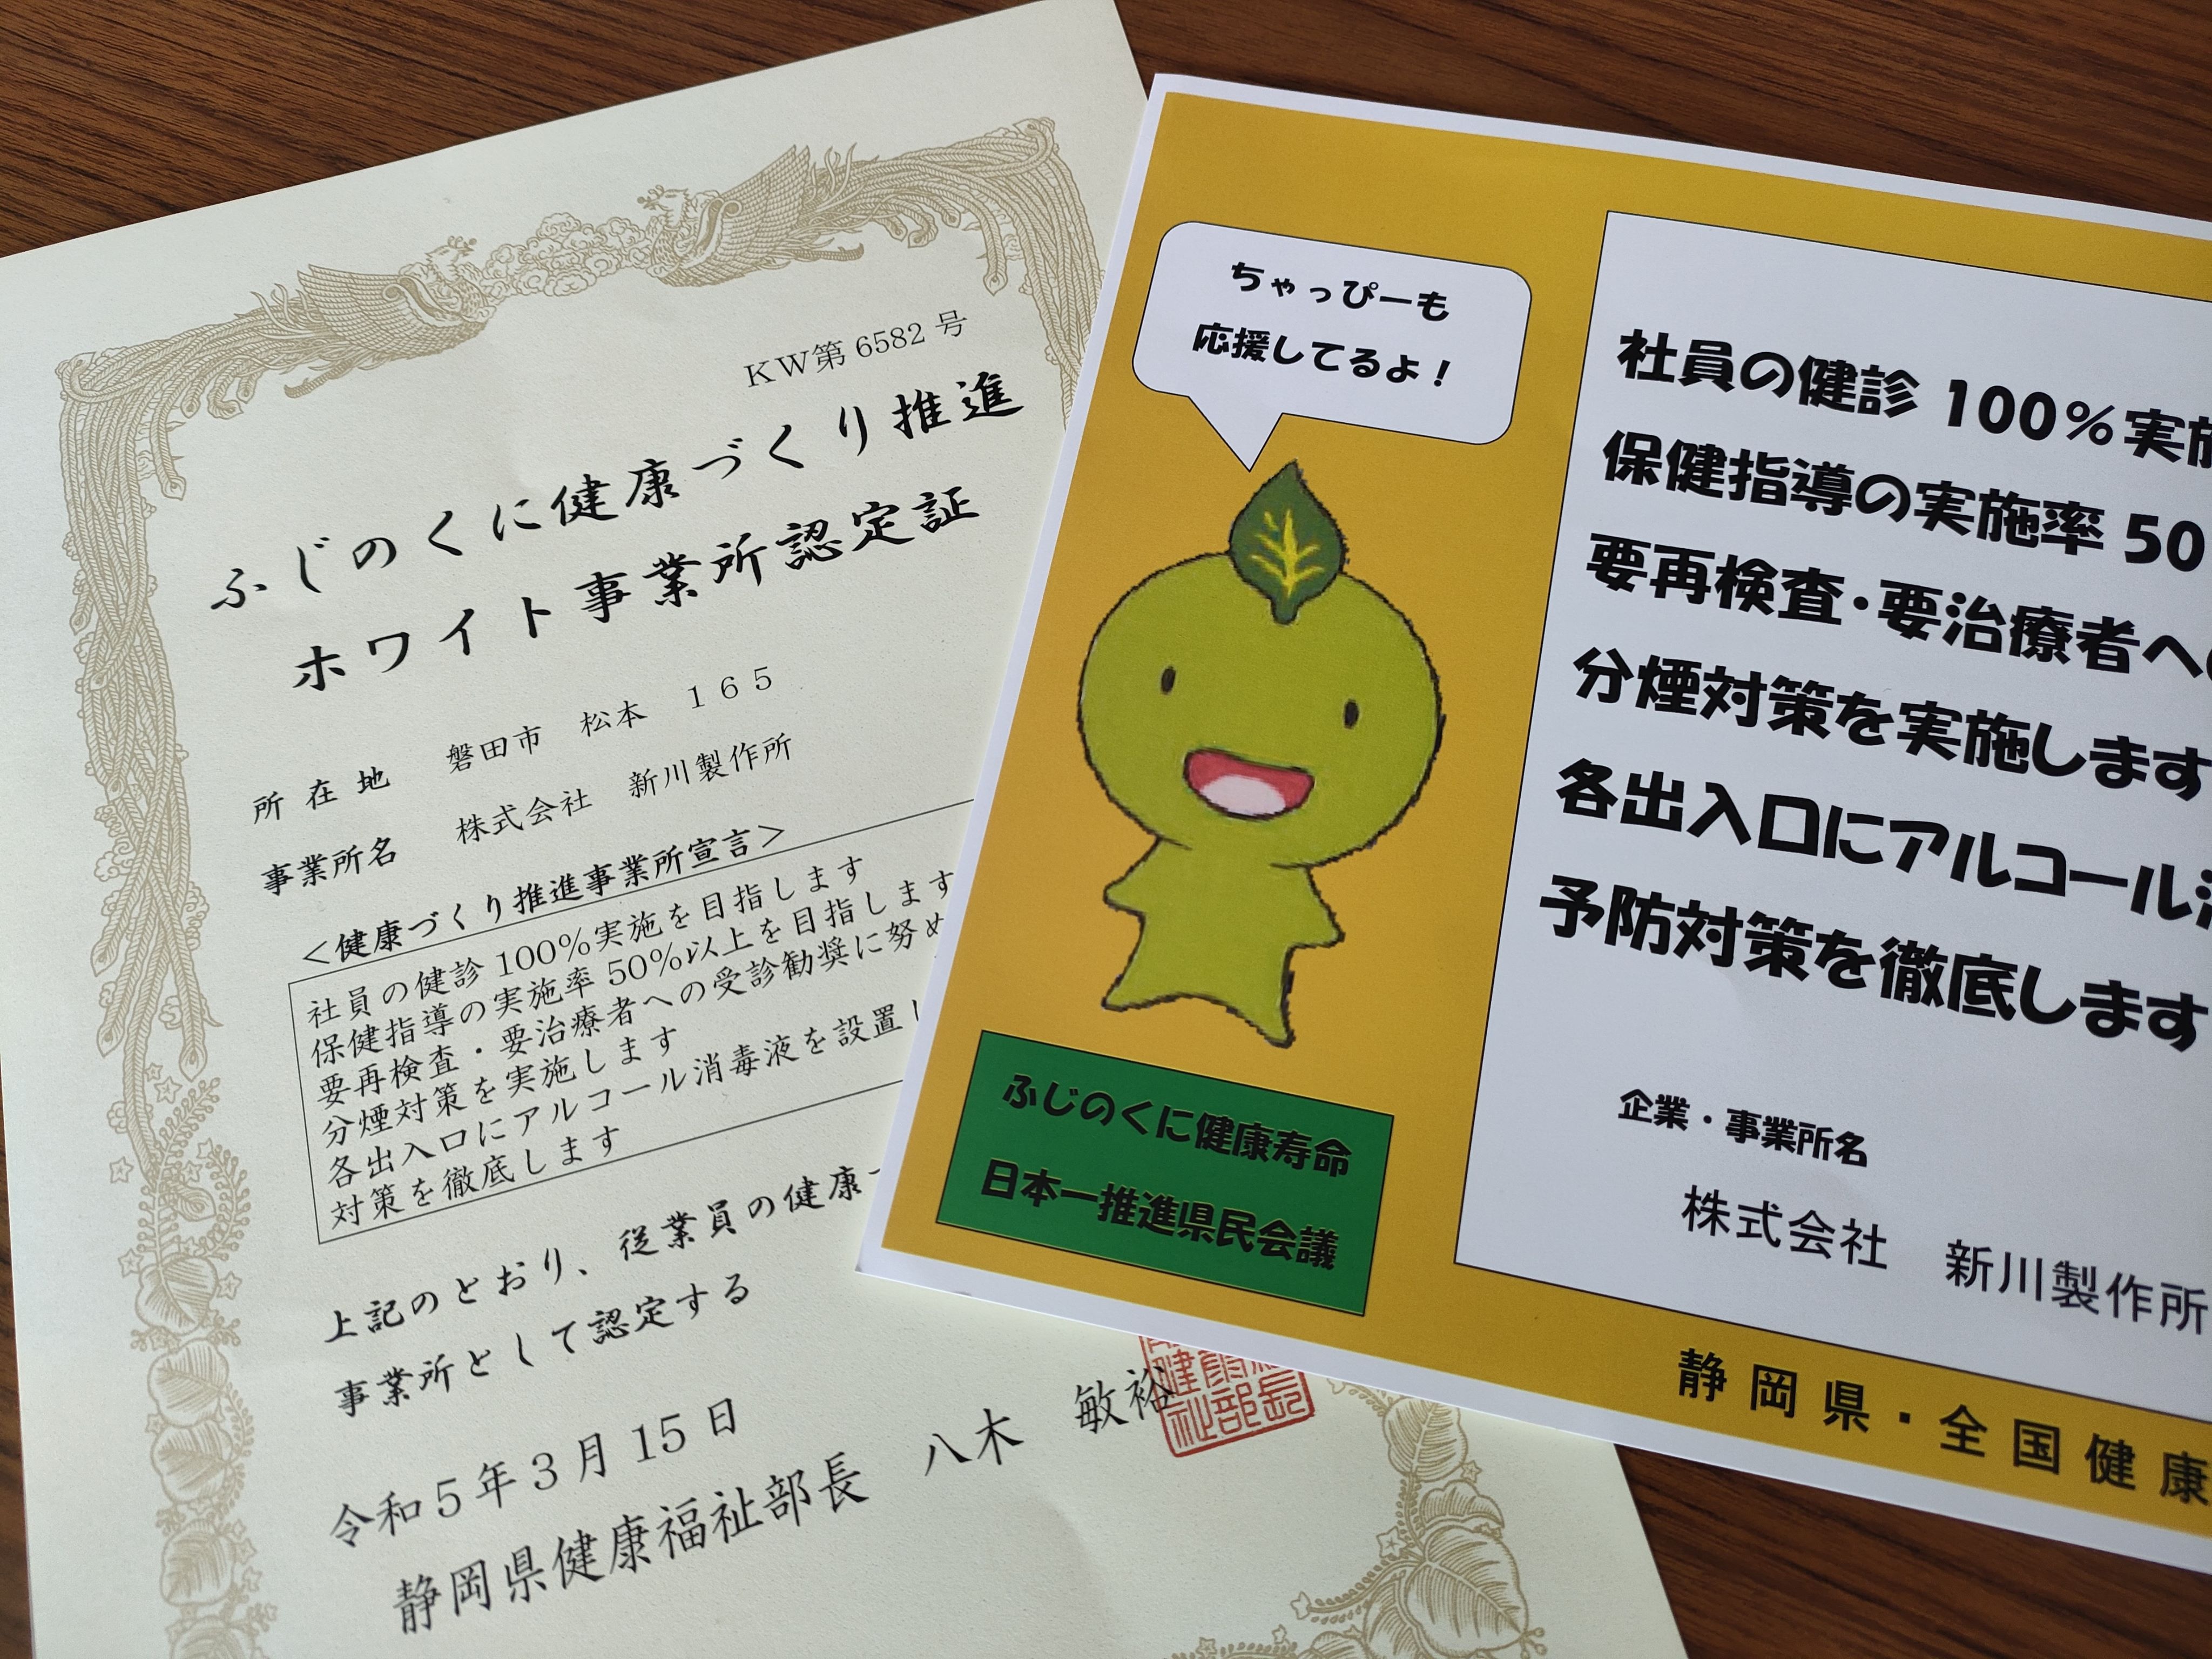 KW第 6582 号
ふじのくに健康づくり推進
ホワイト事業所認定証
所在地 磐田市 松本 １６５
事業所名 株式会社 新川製作所
＜健康づくり推進事業所宣言＞
社員の健診 100％実施を目指します
保健指導の実施率 50％以上を目指します
要再検査・要治療者への受診勧奨に努め
分煙対策を実施します
各出入口にアルコール消毒液を設置し
対策を徹底します
上記のとおり、従業員の健康
事業所として認定する
令和５年３月 15 日
静岡県健康福祉部長 八木 敏裕
ちゃっぴーも
応援してるよ！
ふじのくに健康寿命
日本一推進県民会議
社員の健診 100％実施
保健指導の実施率 50
要再検査・要治療者への
分煙対策を実施します
各出入口にアルコール
予防対策を徹底します
企業・事業所名
株式会社 新川製作所
静岡県・全国健康